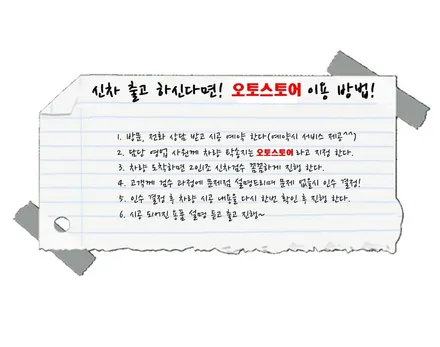 신차 출고 하신다면! 오토스토어 이용 방법!
1. 방문, 전화 상담 받고 시공 예약 한다(예약시 서비스 제공^^)
2. 담당 영업 사원께 차량 탁송지는 오토스토어 라고 지정 한다.
3. 차량 도착하면 2인1조 신차검수 꼼꼼하게 진행 한다.
4. 고객께 검수 과정에 문제점 설명드리며 문제 없을시 인수 결정!
5. 인수 결정 후 차량 시공 내용을 다시 한번 확인 후 진행 한다.
6. 시공 되어진 용품 설명 듣고 출고 진행~